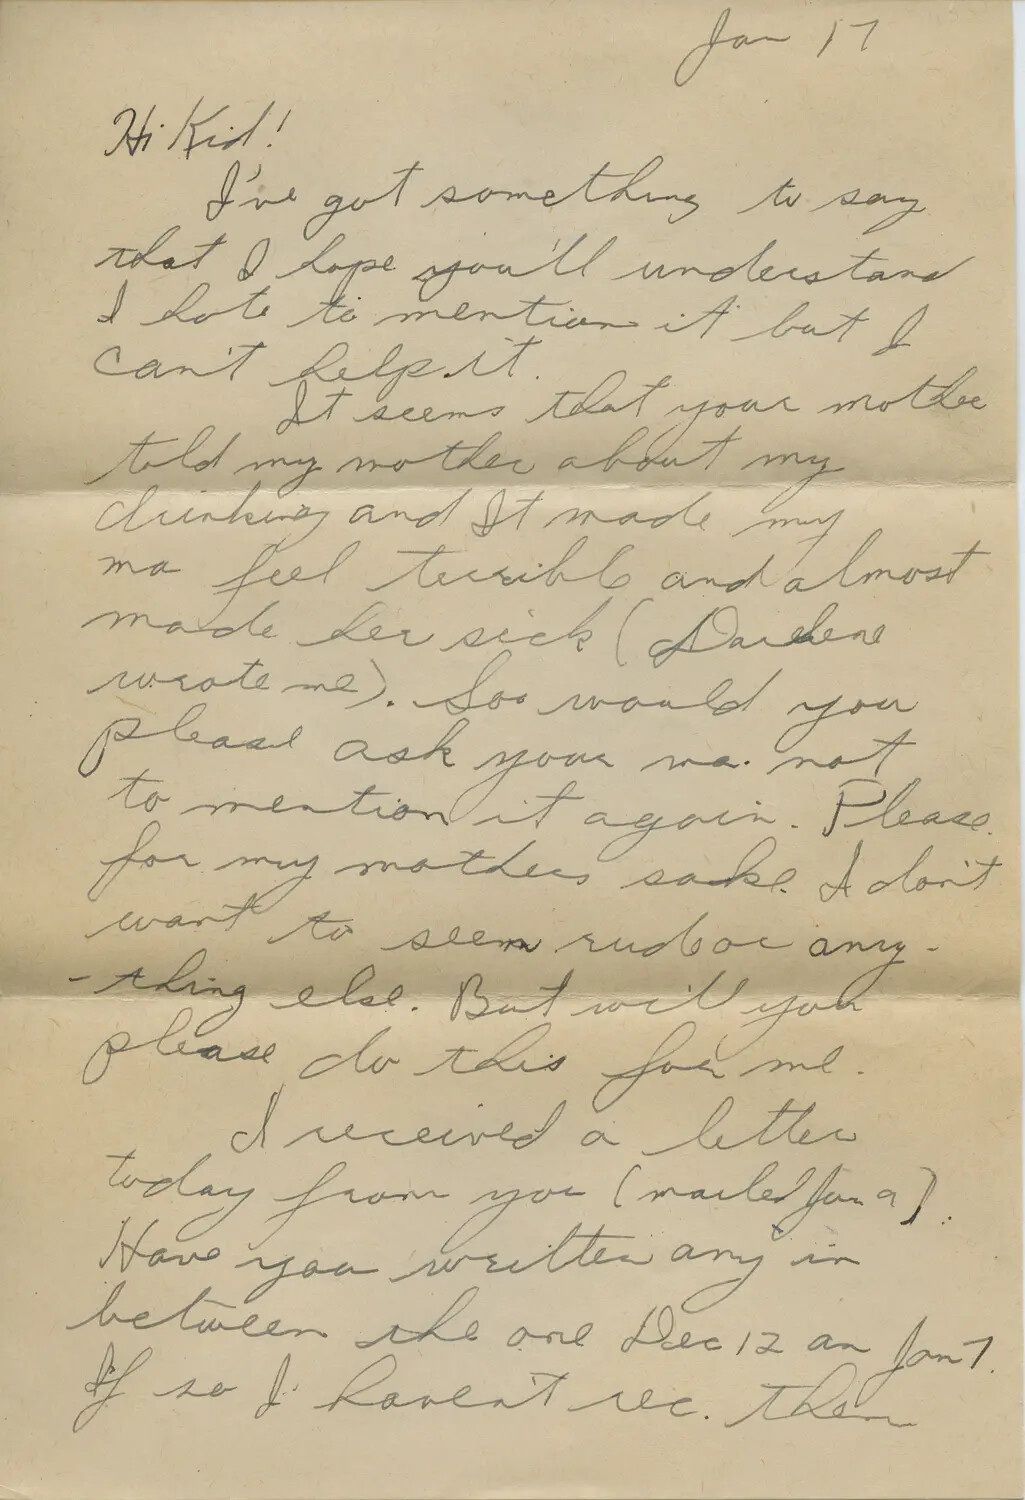 Jan 17
Hi Kid!
I've got something to say
that I hope you'll understand
I hate to mention it but I
can't help it.
It seems that your mother
told my mother about my
drinking and It made my
ma feel terrible and almost
made her sick (Darlene
wrote me). Soo would you
please ask your ma. not
to mention it again. Please
for my mothers sake. I don't
want to seem rude or any-
-thing else. But will you
please do this for me.
I received a letter
today from you (mailed Jan 9).
Have you written any in
between the one Dec 12 an Jan 7.
If so I haven't rec. them